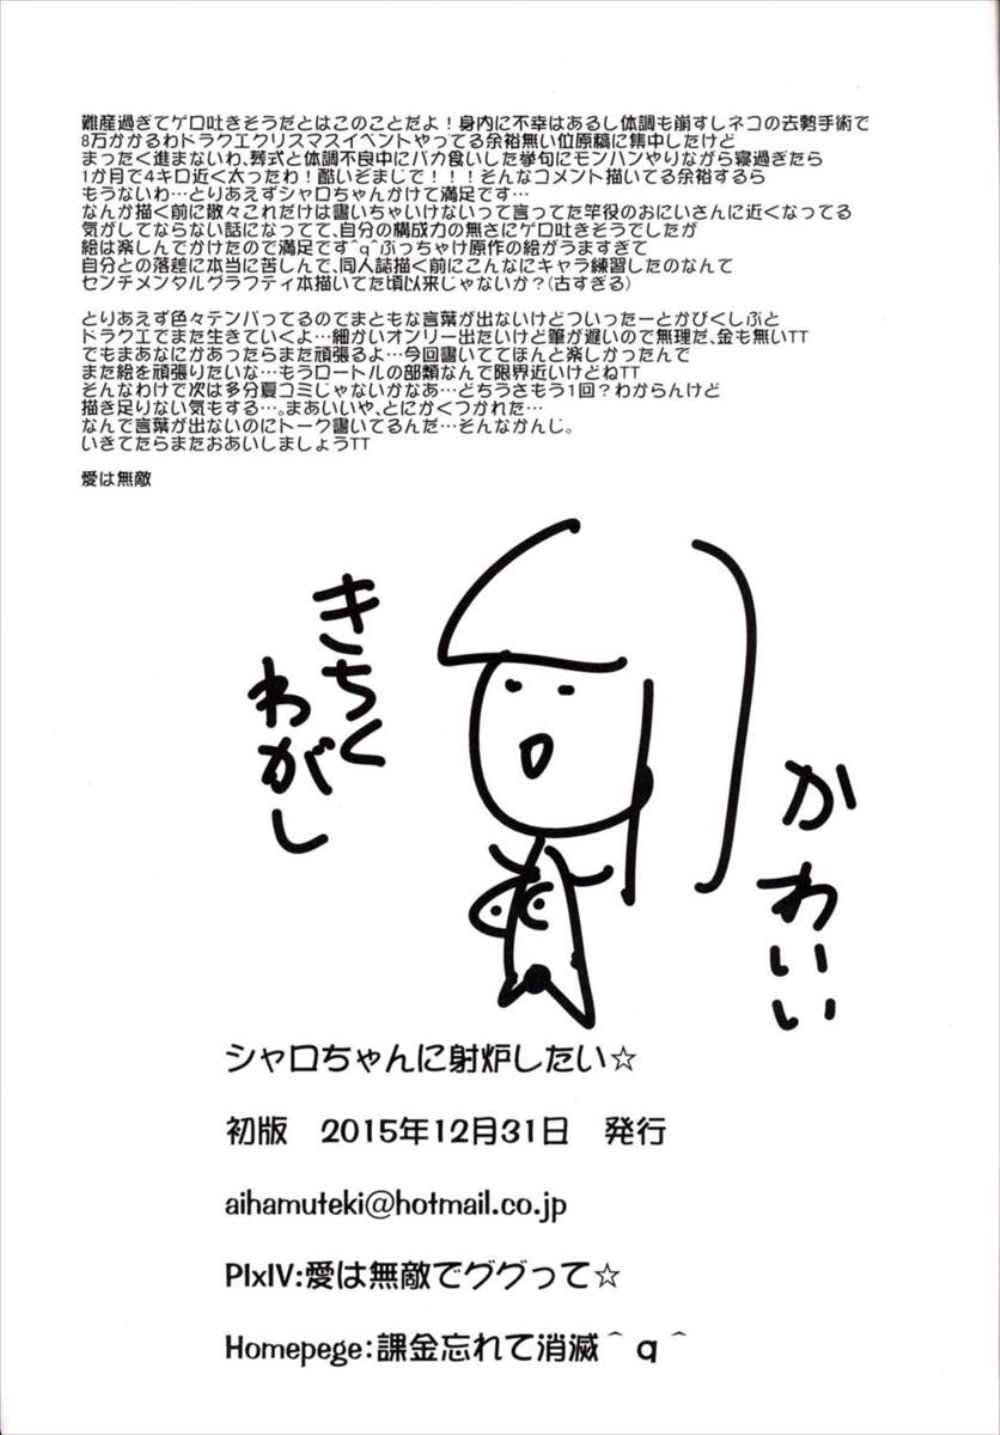 難産過ぎてゲロ吐きそうだとはこのことだよ！身内に不幸はあるし体調も崩すしネコの去勢手術で
8万かかるわドラクエクリスマスイベントやってる余裕無い位原稿に集中したけど
まったく進まないわ、葬式と体調不良中にバカ食いした挙句にモンハンやりながら寝過ぎたら
1か月で4キロ近く太ったわ！酷いぞまじで！！！そんなコメント描いてる余裕するら
もうないわ…とりあえずシャロちゃんかけて満足です…
なんか描く前に散々これだけは書いちゃいけないって言ってた竿役のおにいさんに近くなってる
気がしてならない話になってて、自分の構成力の無さにゲロ吐きそうでしたが
絵は楽しんでかけたので満足です^q^ぶっちゃけ原作の絵がうますぎて
自分との落差に本当に苦しんで、同人誌描く前にこんなにキャラ練習したのなんて
センチメンタルグラフティ本描いてた頃以来じゃないか？(古すぎる)

とりあえず色々テンパってるのでまともな言葉が出ないけどついったーとかぴくしぶと
ドラクエでまた生きていくよ…細かいオンリー出たいけど筆が遅いので無理だ、金も無いTT
でもまあなにかあったらまた頑張るよ…今回書いててほんと楽しかったんで
また絵を頑張りたいな…もうロートルの部類なんで限界近いけどねTT
そんなわけで次は多分夏コミじゃないかなあ…どちうさもう1回？わからんけど
描き足りない気もする…。まあいいや、とにかくつかれた…
なんで言葉が出ないのにトーク書いてるんだ…そんなかんじ。
いきてたらまたおあいしましょうTT

愛は無敵

きちく
わがし
かわいい

シャロちゃんに射炉したい☆
初版　2015年12月31日　発行
aihamuteki@hotmail.co.jp
PIxIV:愛は無敵でググって☆
Homepege:課金忘れて消滅＾ｑ＾